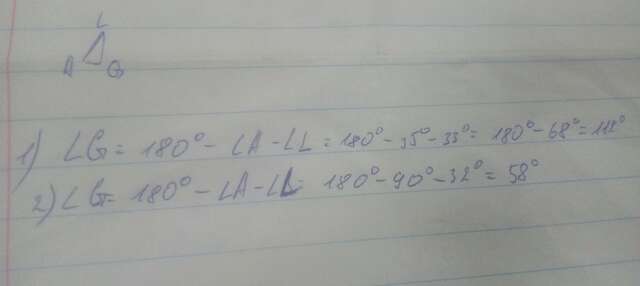 L
A G
1) ∠G = 180° - ∠A - ∠L = 180° - 35° - 33° = 180° - 68° = 112°
2) ∠G = 180° - ∠A - ∠L = 180° - 90° - 32° = 58°